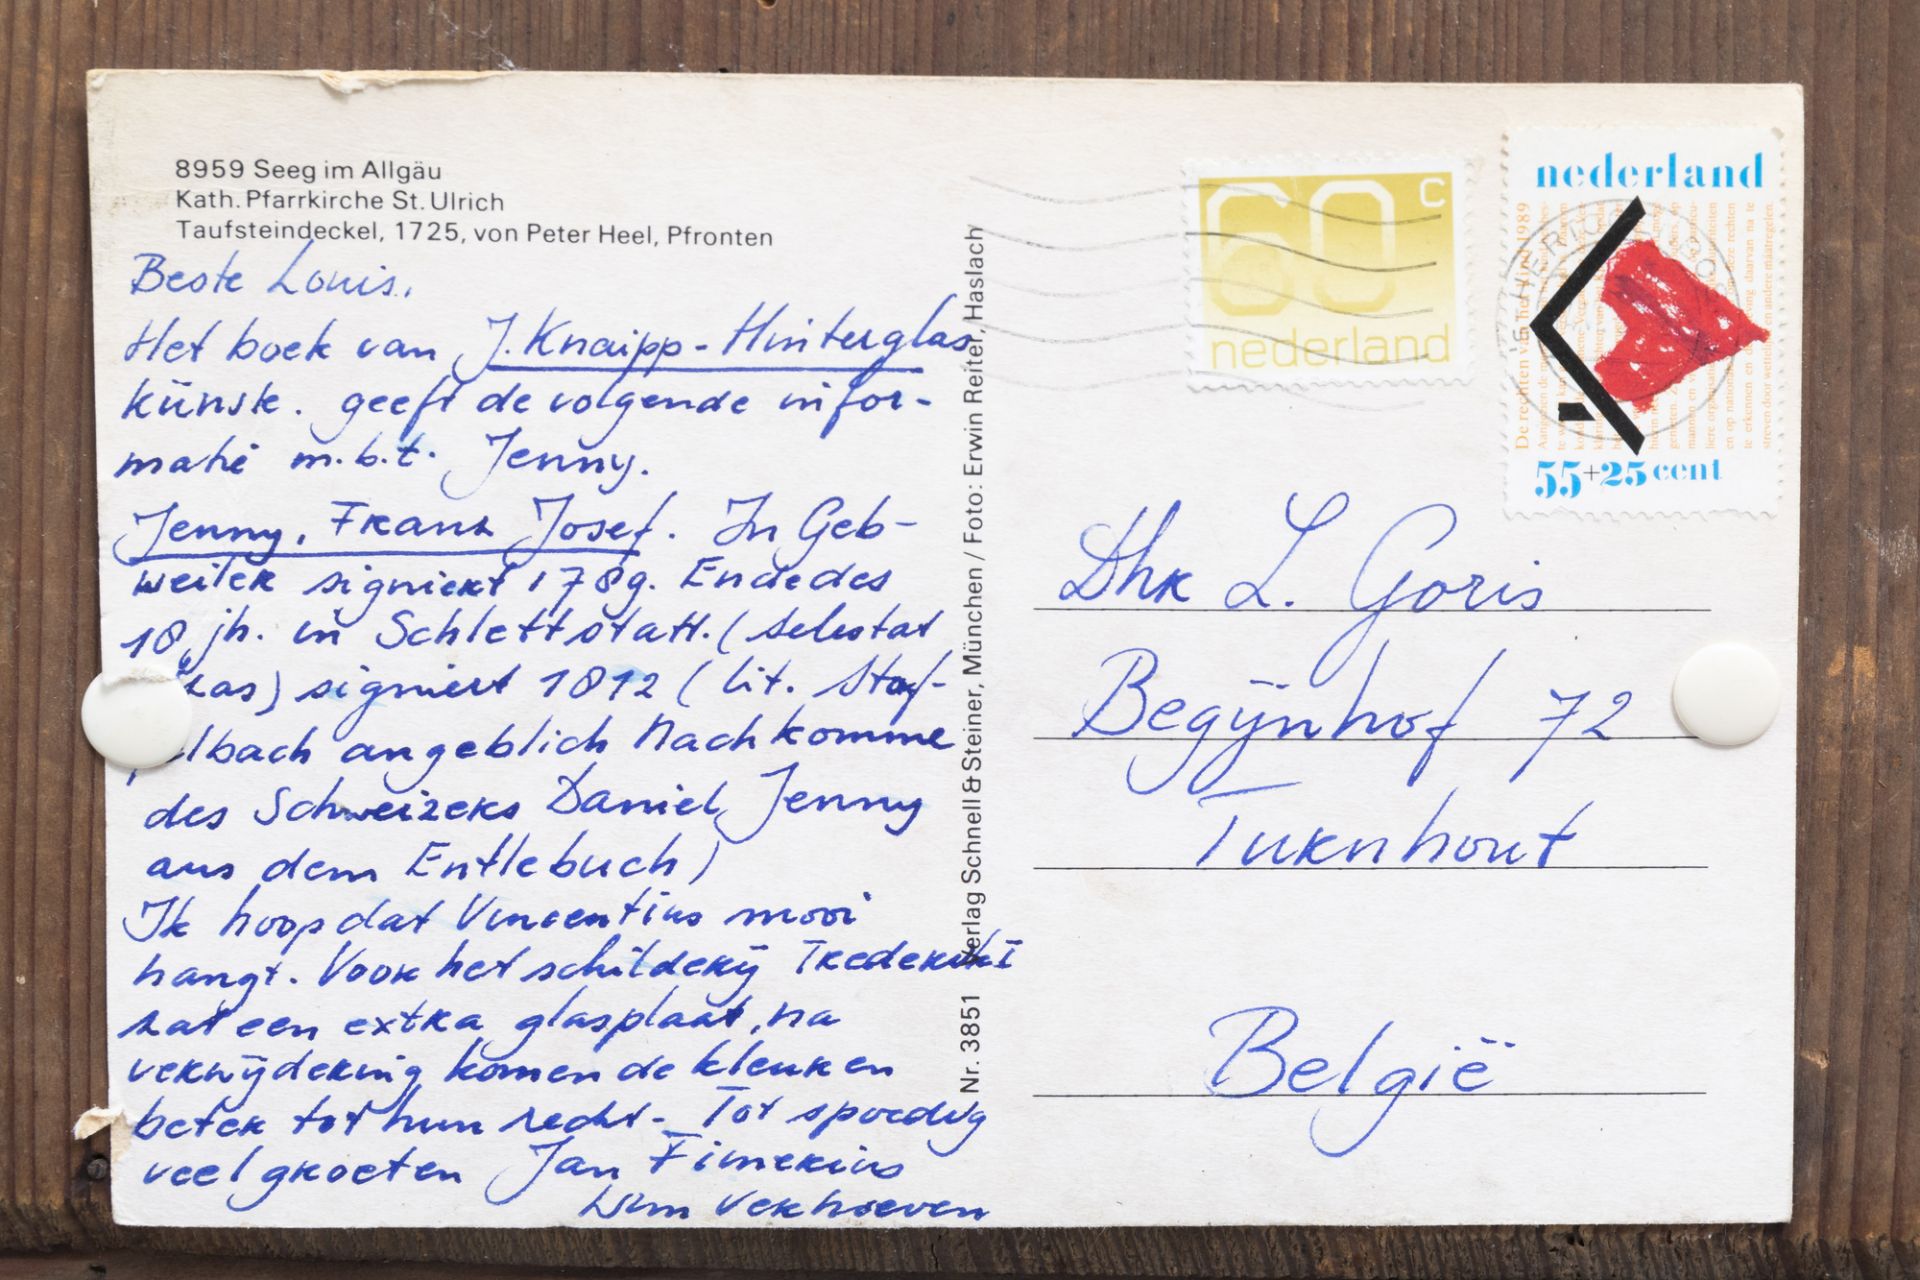 8959 Seeg im Allgäu
Kath. Pfarrkirche St. Ulrich
Taufsteindeckel, 1725, von Peter Heel, Pfronten
Beste Louis,
Het boek van J. Knaipp - Hinterglas
künste. geeft de volgende infor-
matie m.b.t. Jenny.
Jenny, Franz Josef. In Geb-
weiler signiert 1789. Ende des
18 jh. in Schlettstatt. (Selestat
signiert 1812 (lit. Staf-
lbach angeblich Nachkomme
des Schweizers Daniel Jenny
aus dem Entlebuch)
Ik hoop dat Vincentius mooi
hangt. Voor het schilderij
zat een extra glasplaat, na
verwijdering komen de kleuren
beter tot hun recht - Tot spoedig
veel groeten Jan
Wim Verhoeven
Nr. 3851 Verlag Schnell & Steiner, München / Foto: Erwin Reiter, Haslach
60 c
nederland
nederland
De rechten van het kind 1989
55+25 cent
Dhr L. Goris
Begijnhof 72
Turnhout
België